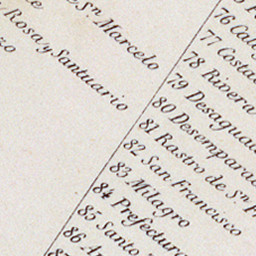 Sn. Marcelo
Rosa y Santuario
76
77 Costa
78 Rivera
79 Desagua
80 Desempara
81 Rastro de Sn.
82 San Francisco
83 Milagro
84 Prefectura
85 Santo
86
87